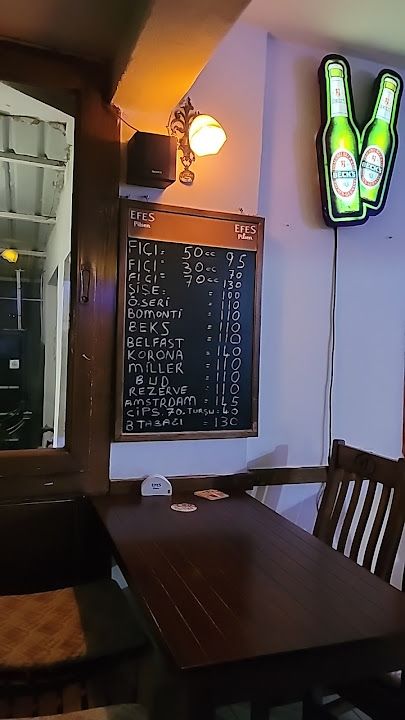 EFES
Pilsen
EFES
Pilsen
FIÇI = 50cc 95
FIÇI = 30cc 70
FIÇI = 70cc 130
ŞİŞE: = 100
Ö.SERİ = 110
BOMONTİ = 110
BEKS = 110
BELFAST = 110
KORONA = 140
MİLLER = 110
BUD = 110
REZERVE = 110
AMSTRDAM = 145
CİPS.70.TURŞU = 40
B TABAĞI = 130
BECK'S
BECK'S
EFES